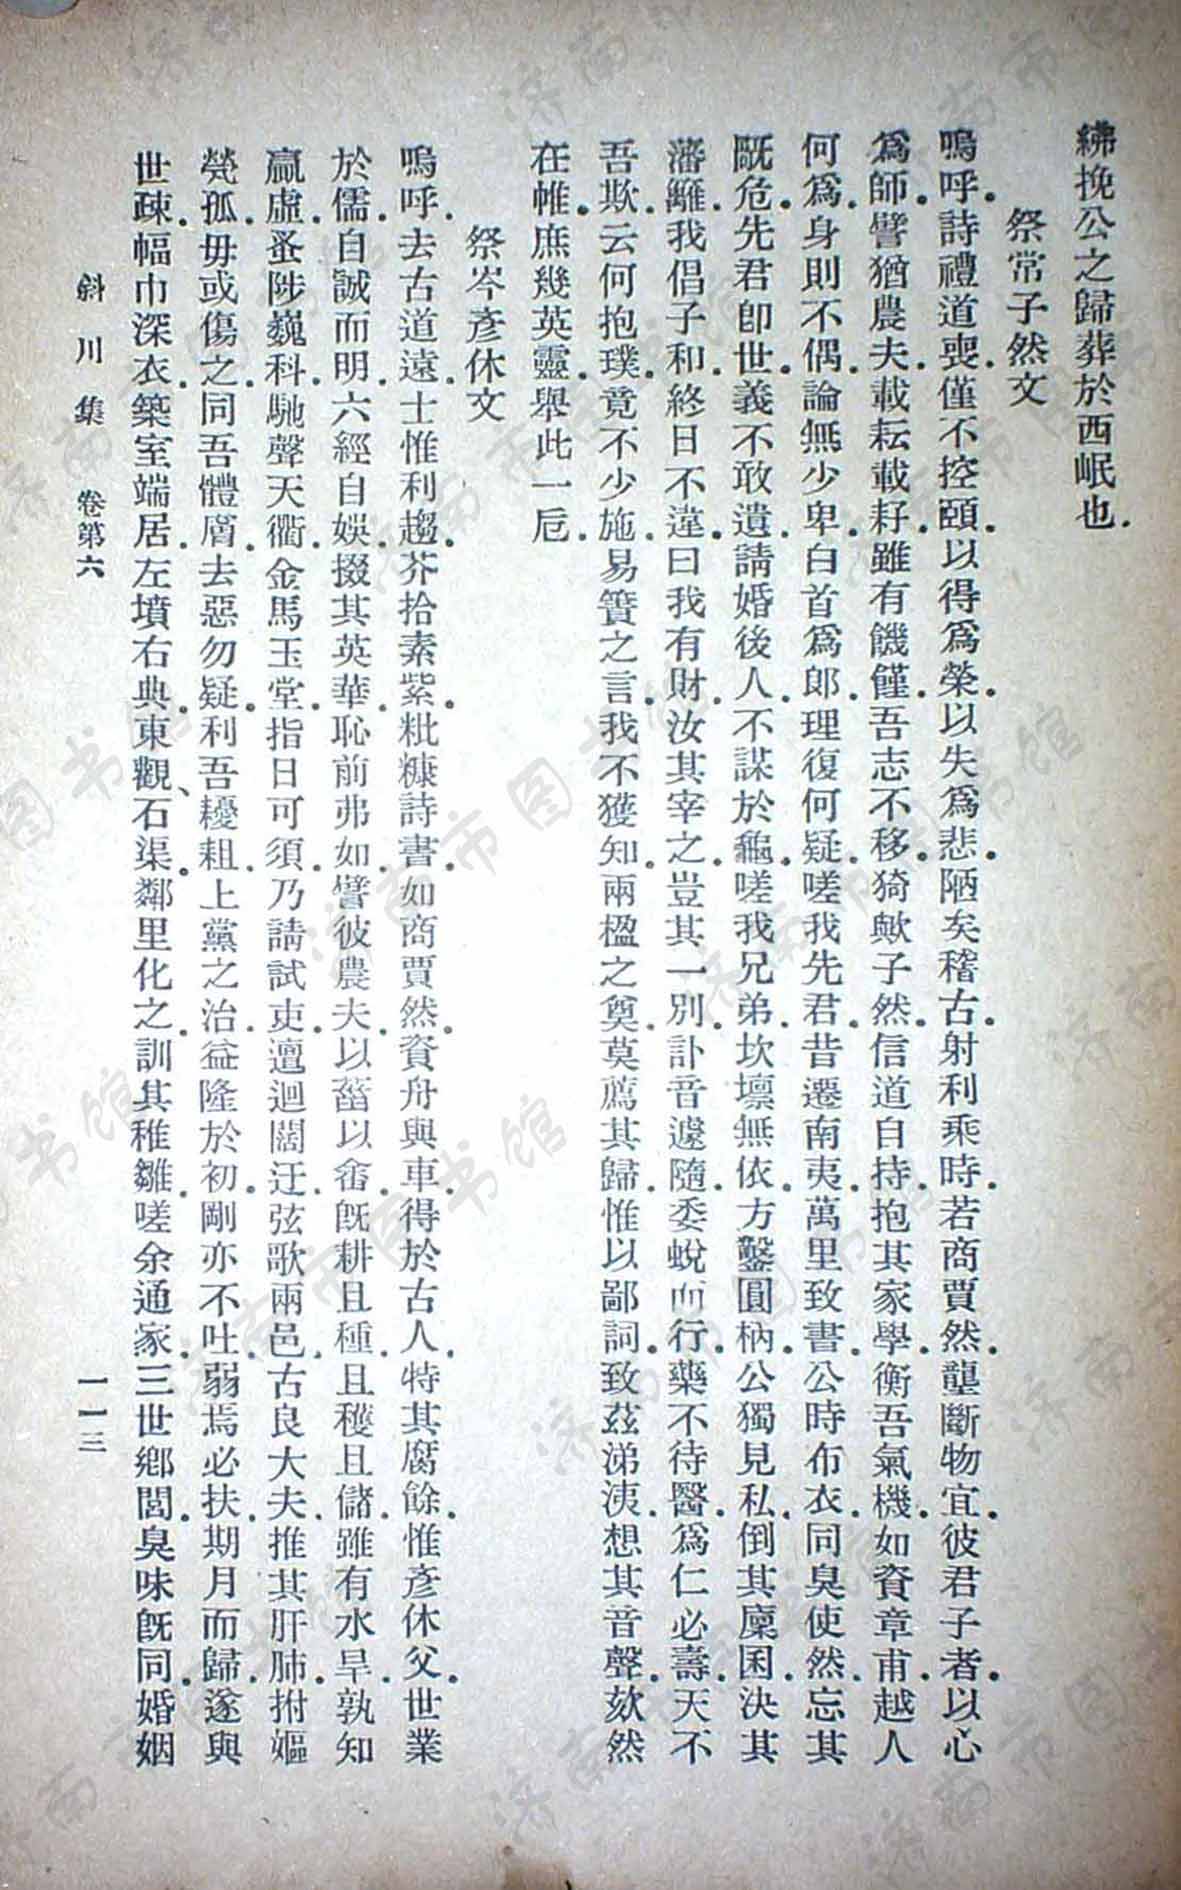 紼挽公之歸葬於西岷也.
祭常子然文
嗚呼.詩禮道喪.僅不控頤.以得爲榮.以失爲悲.陋矣稽古.射利乘時.若商賈然.壟斷物宜.彼君子者.以心
爲師.譬猶農夫.載耘載耔.雖有饑饉.吾志不移.猗歟子然.信道自持.抱其家學.衡吾氣機.如資章甫.越人
何爲.身則不偶.論無少卑.白首爲郎.理復何疑.嗟我先君.昔遷南夷.萬里致書.公時布衣.同臭使然.忘其
阽危.先君卽世.義不敢遺.請婚後人.不謀於龜.嗟我兄弟.坎壈無依.方鑿圓枘.公獨見私.倒其廩囷.決其
藩籬.我倡子和.終日不違.曰我有財.汝其宰之.豈其一別.訃音遽隨.委蛻而行.藥不待醫.爲仁必壽.天不
吾欺.云何抱璞.竟不少施.易簀之言.我不獲知.兩楹之奠.莫薦其歸.惟以鄙詞.致茲涕洟.想其音聲.欬然
在帷.庶幾英靈.舉此一卮.
祭岑彥休文
嗚呼.去古道遠.士惟利趨.芥拾素紫.粃糠詩書.如商賈然.資舟與車.得於古人.特其腐餘.惟彥休父.世業
於儒.自誠而明.六經自娛.掇其英華.恥前弗如.譬彼農夫.以菑以畬.旣耕且種.且穫且儲.雖有水旱.孰知
贏虛.蚤陟巍科.馳聲天衢.金馬玉堂.指日可須.乃請試吏.邅迴闊迂.弦歌兩邑.古良大夫.推其肝肺.拊嫗
煢孤.毋或傷之.同吾體膚.去惡勿疑.利吾耰耝.上黨之治.益隆於初.剛亦不吐.弱焉必扶.期月而歸.遂與
世疎.幅巾深衣.築室端居.左墳右典.東觀、石渠.鄰里化之.訓其稚雛.嗟余通家.三世鄉閭.臭味旣同.婚姻
斜川集 卷第六
一一三